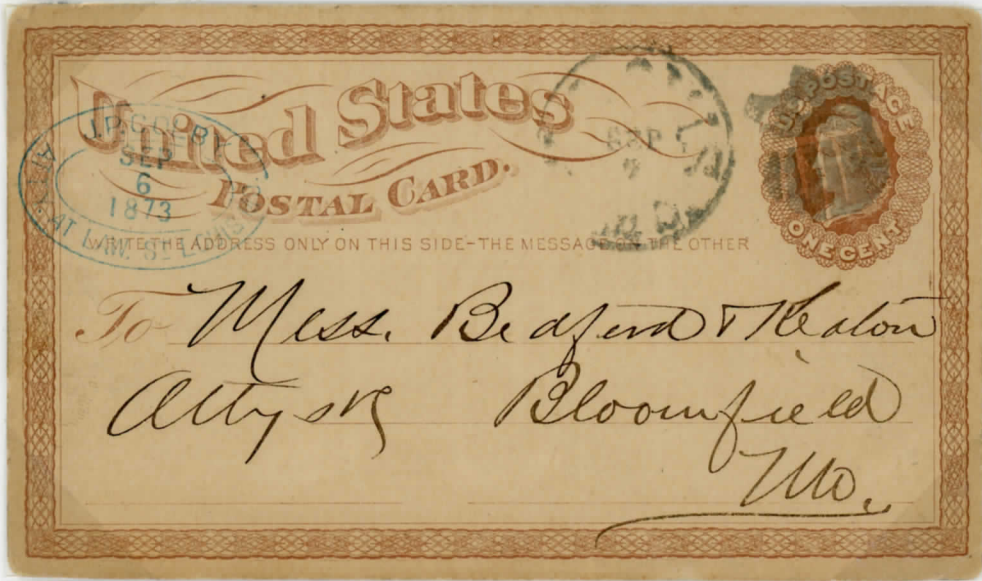 United States
POSTAL CARD.
WRITE THE ADDRESS ONLY ON THIS SIDE-THE MESSAGE ON THE OTHER
U.S. POSTAGE
ONE CENT
SEP
6
1873
AT LAW. ST LOUIS
SEP
To Mess. Bedford & Keaton
Attys &
Bloomfield
Mo.